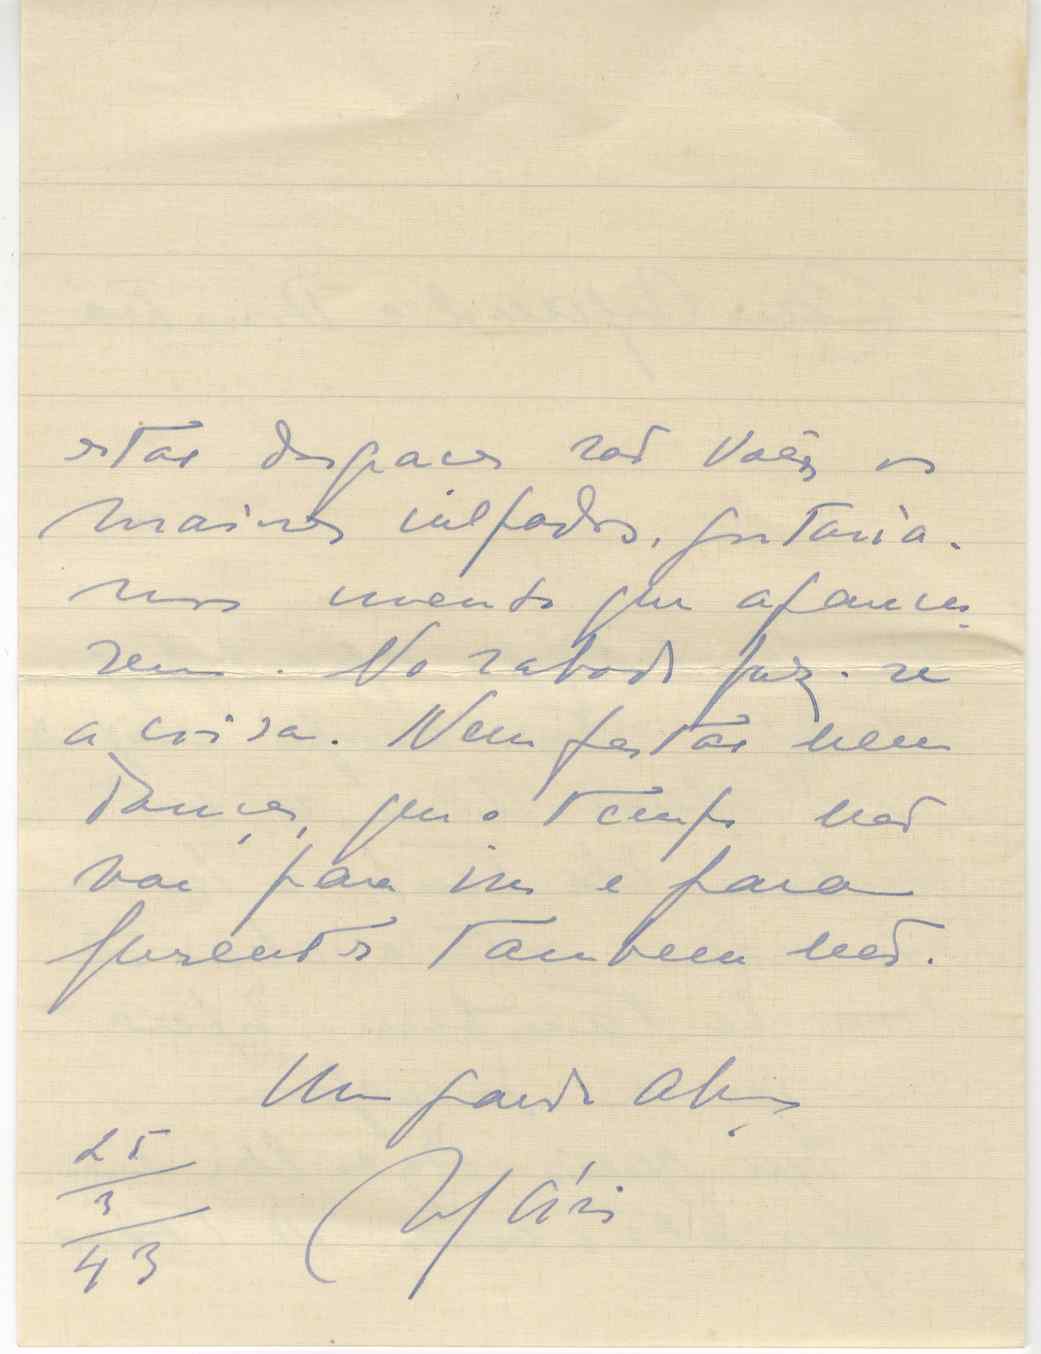 estas desgraças são Vocês os
maiores culpados, gostaria-
mos imenso que apareces-
sem. No sabado faz-se
a coisa. Nem festas nem
danças, que o tempo não
vai para isso e para
presentes tambem não.
Um grande Abraço
25
3
43
Mário